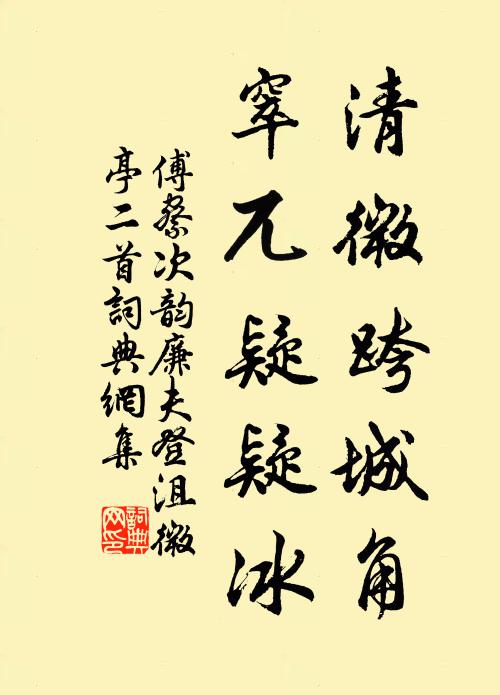 清微跨城角
窣兀疑疑冰
傅察次韵廉夫登沮微
亭二首詞典網集
詞典
网印